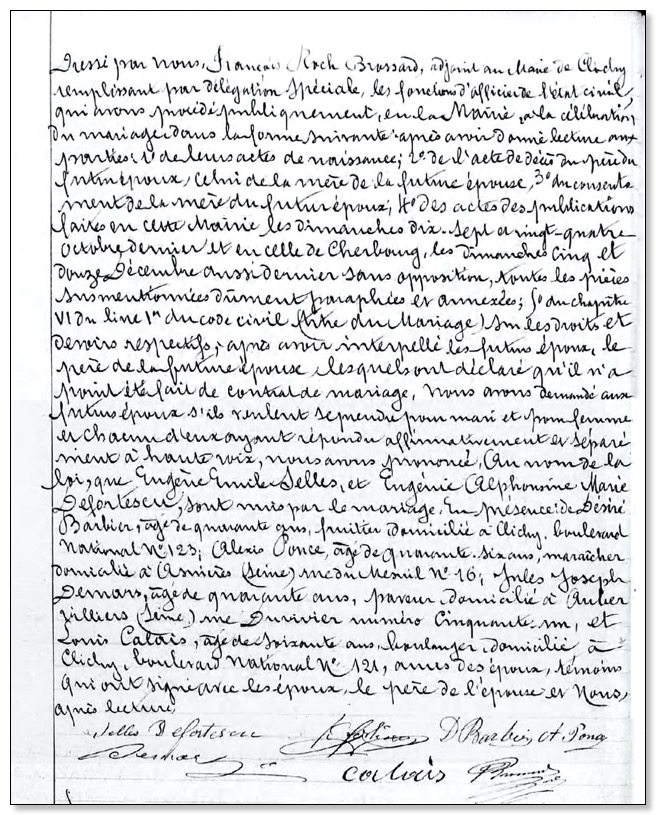 Dressé par nous, François Roch Brossard, adjoint au Maire de Clichy
remplissant par délégation spéciale, les fonctions d'officier de l'état civil,
qui avons procédé publiquement, en la Mairie, à la célébration
du mariage dans la forme suivante: après avoir donné lecture aux
parties: 1º de leurs actes de naissance; 2º de l'acte de décès du père du
futur époux, celui de la mère de la future épouse, 3º du consente
ment de la mère du futur époux; 4º des actes des publications
faites en cette Mairie les dimanches dix-sept et vingt-quatre
Octobre dernier et en celle de Cherbourg, les dimanches cinq et
douze Décembre aussi dernier sans opposition, toutes les pièces
susmentionnées dûment paraphées et annexées; 5º du chapitre
VI du livre 1er du code civil (titre du Mariage) sur les droits et
devoirs respectifs; après avoir interpellé les futurs époux, le
père de la future épouse, lesquels ont déclaré qu'il n'a
point été fait de contrat de mariage, nous avons demandé aux
futurs époux s'ils veulent se prendre pour mari et pour femme
et chacun d'eux ayant répondu affirmativement et séparé
ment à haute voix, nous avons prononcé, (au nom de la
loi, que Eugène Emile Selles, et Eugénie Alphonsine Marie
Defortescu, sont unis par le mariage. En présence: de Désiré
Barbier, âgé de quarante ans, fruitier domicilié à Clichy, boulevard
National Nº 123; Alexis Ponce, âgé de quarante-six ans, maraîcher
domicilié à Asnières (Seine) rue du Mesnil Nº 16; Jules Joseph
Demars, âgé de quarante ans, paveur domicilié à Auber
villiers (Seine) rue Duvivier numéro Cinquante-un, et
Louis Calais, âgé de soixante ans, boulanger domicilié à
Clichy, boulevard National Nº 121, amis des époux, témoins
qui ont signé avec les époux, le père de l'épouse et Nous,
après lecture.
Selles Defortescu D Barbier A Ponce
Demars
calais